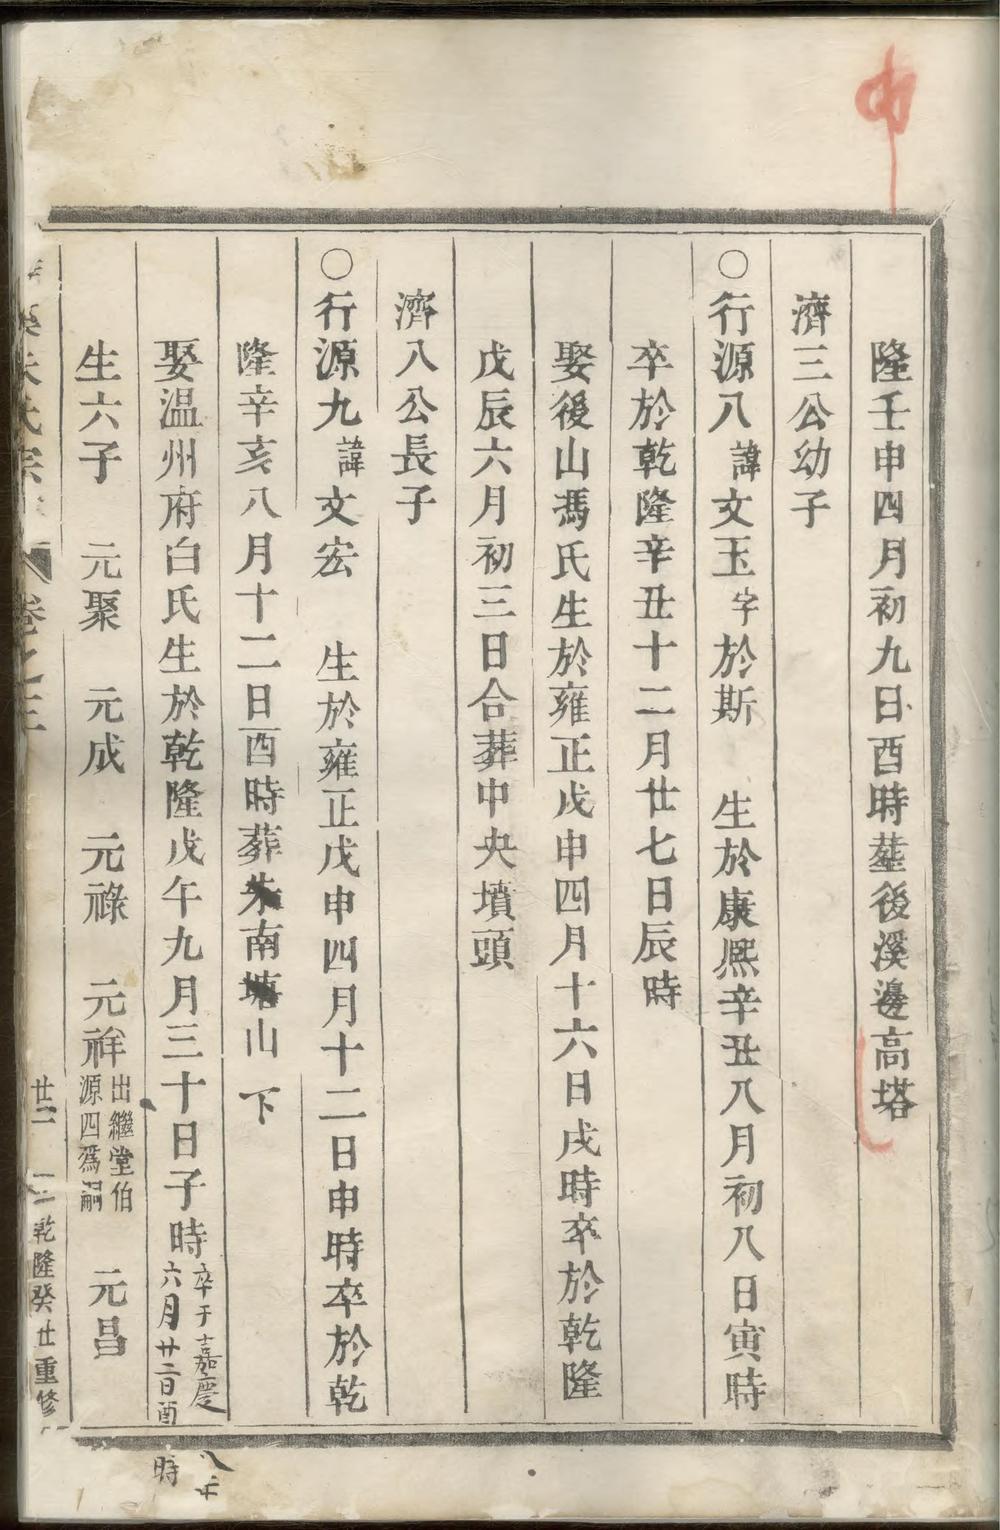 隆壬申四月初九日酉時塟後溪邊高塔
濟三公幼子
○行源八諱文玉字於斯　生於康熙辛丑八月初八日寅時
卒於乾隆辛丑十二月廿七日辰時
娶後山馮氏生於雍正戊申四月十六日戌時卒於乾隆
戊辰六月初三日合葬中央墳頭
濟八公長子
○行源九諱文宏　生於雍正戊申四月十二日申時卒於乾
隆辛亥八月十二日酉時葬朱南塘山下
娶温州府白氏生於乾隆戊午九月三十日子時卒于嘉慶八年六月廿二日酉時
生六子　元聚　元成　元祿　元祥出繼堂伯源四爲嗣　元昌
朱氏宗　卷之三　廿二　乾隆癸丑重修